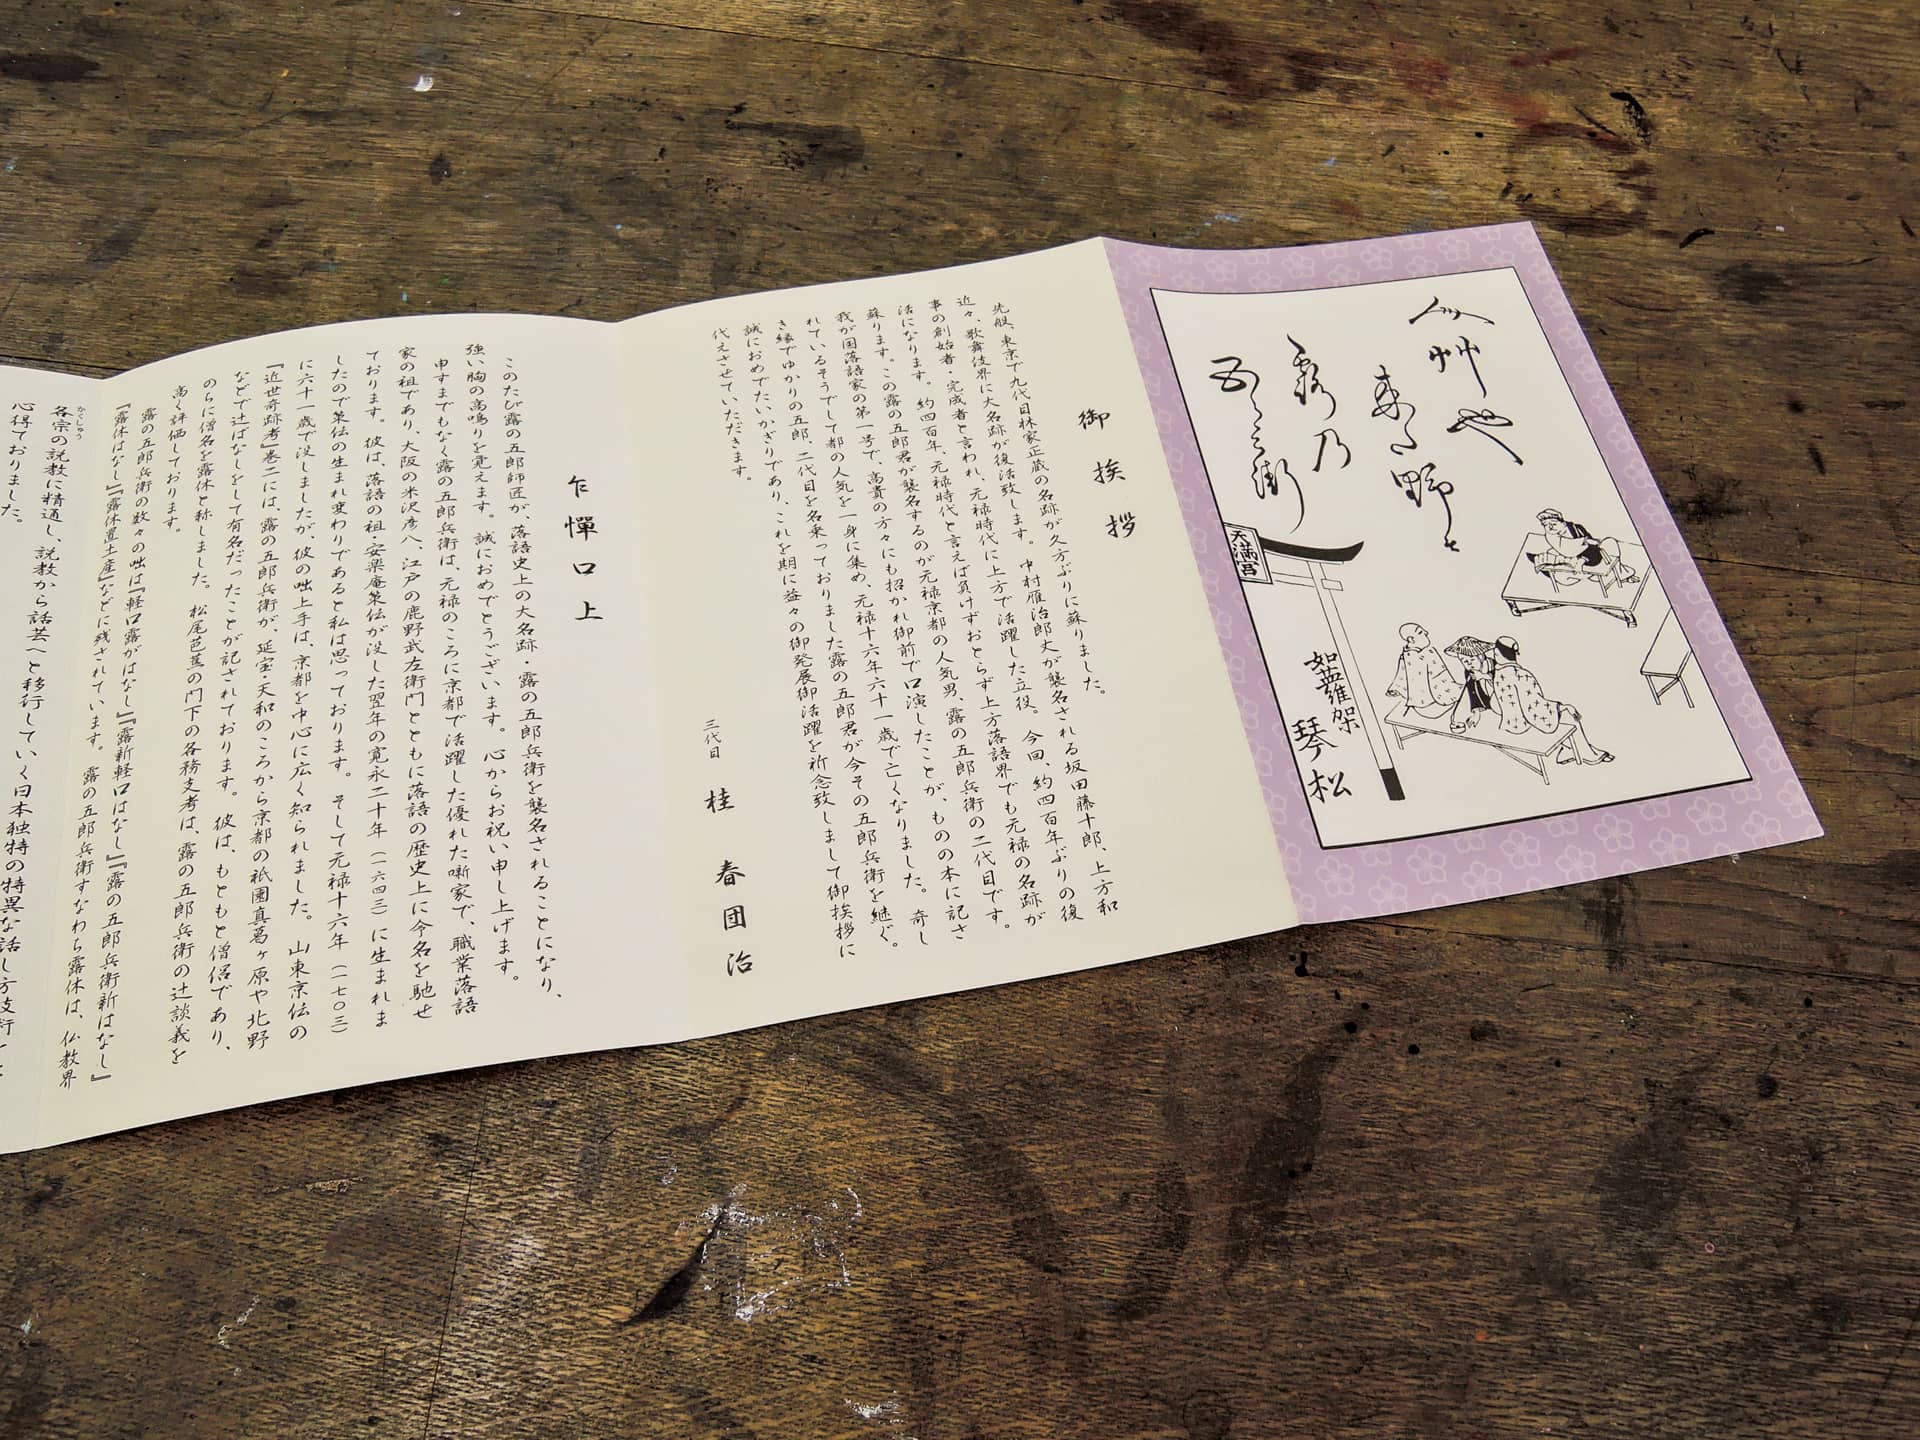 天満宮
如蓋羅架
琴松
御挨拶
先般、東京で九代目林家正蔵の名跡が久方ぶりに蘇りました。
近々、歌舞伎界に大名跡が復活致します。中村雁治郎丈が襲名される坂田藤十郎、上方和
事の創始者・完成者と言われ、元禄時代に上方で活躍した立役。今回、約四百年ぶりの復
活になります。約四百年、元禄時代と言えば負けずおとらず上方落語界でも元禄の名跡が
蘇ります。この露の五郎君が襲名するのが元禄京都の人気男、露の五郎兵衛の二代目です。
我が国落語家の第一号で、高貴の方々にも招かれ御前で口演したことが、ものの本に記さ
れているそうでして都の人気を一身に集め、元禄十六年六十一歳で亡くなりました。奇し
き縁でゆかりの五郎、二代目を名乗っておりました露の五郎君が今その五郎兵衛を継ぐ。
誠におめでたいかぎりであり、これを期に益々の御発展御活躍を祈念致しまして御挨拶に
代えさせていただきます。
三代目 桂 春団治
乍憚口上
このたび露の五郎師匠が、落語史上の大名跡・露の五郎兵衛を襲名されることになり、
強い胸の高鳴りを覚えます。誠におめでとうございます。心からお祝い申し上げます。
申すまでもなく露の五郎兵衛は、元禄のころに京都で活躍した優れた噺家で、職業落語
家の祖であり、大阪の米沢彦八、江戸の鹿野武左衛門とともに落語の歴史上に今名を馳せ
ております。彼は、落語の祖・安楽庵策伝が没した翌年の寛永二十年（一六四三）に生まれま
したので策伝の生まれ変わりであると私は思っております。そして元禄十六年（一七〇三）
に六十一歳で没しましたが、彼の咄上手は、京都を中心に広く知られました。山東京伝の
『近世奇跡考』巻二には、露の五郎兵衛が、延宝・天和のころから京都の祇園真葛ヶ原や北野
などで辻ばなしをして有名だったことが記されております。彼は、もともと僧侶であり、
のちに僧名を露休と称しました。松尾芭蕉の門下の各務支考は、露の五郎兵衛の辻談義を
高く評価しております。
露の五郎兵衛の数々の咄は『軽口露がはなし』『露新軽口はなし』『露の五郎兵衛新はなし』
『露休はなし』『露休置土産』などに残されています。露の五郎兵衛すなわち露休は、仏教界
各宗の説教に精通し、説教から話芸へと移行していく日本独特の特異な話し方技術
かくしゅう
心得ておりました。